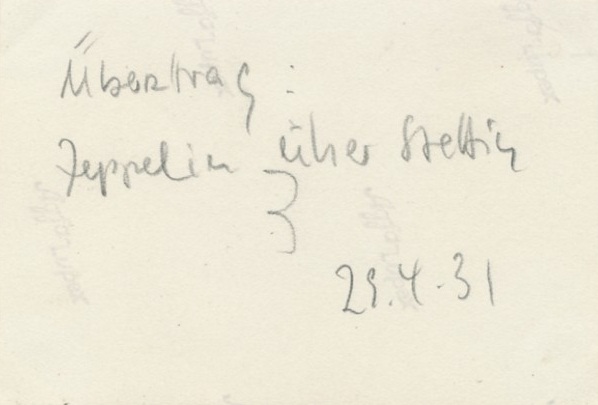 Übertrag:
Zeppelin über Stettin
3
29.4.31